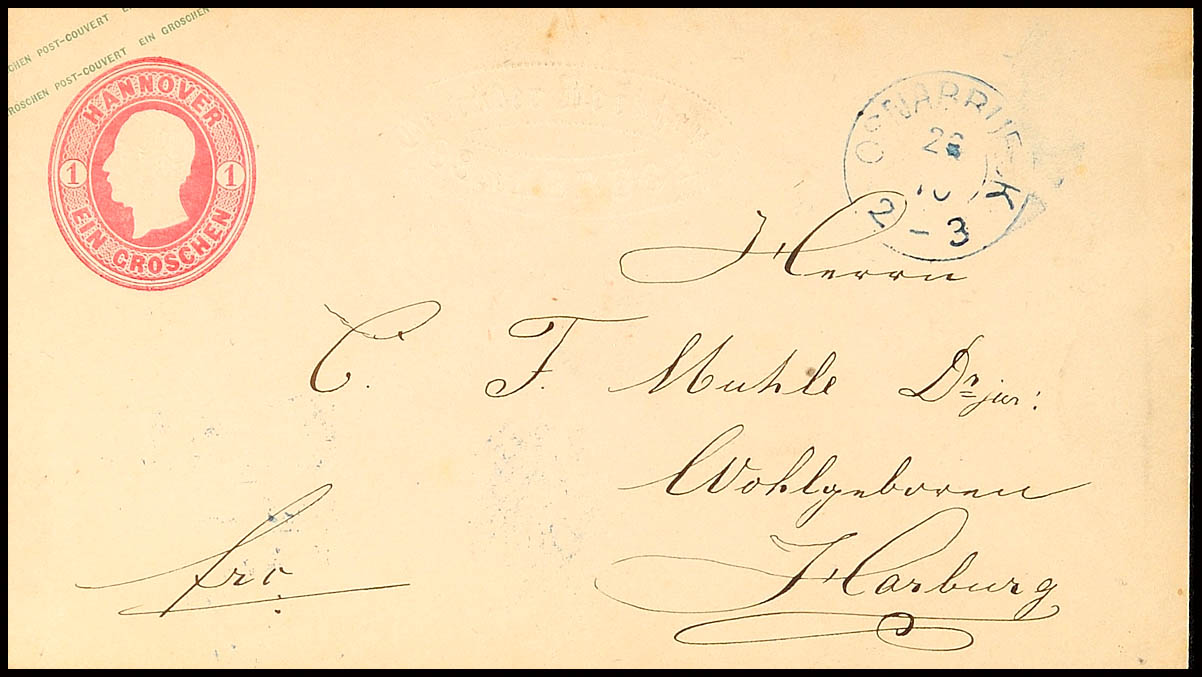 SCHEN POST-COUVERT
GROSCHEN POST-COUVERT EIN GROSCHEN
HANNOVER
1 1
EIN GROSCHEN
OSNABRUECK
26
10
2 - 3
Herrn
C. F. Muhle Dr jur:
Wohlgeboren
Harburg
fro.